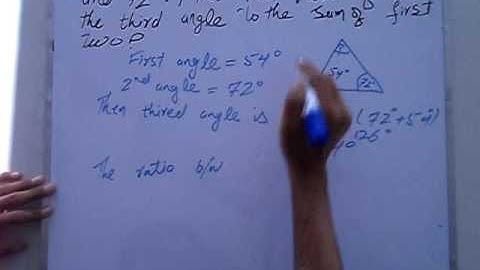 the third angle to the sum of first
two?
First angle = 54°
2nd angle = 72°
Then thired angle is (72°+54°)
126°
The ratio b/w
54°
72°